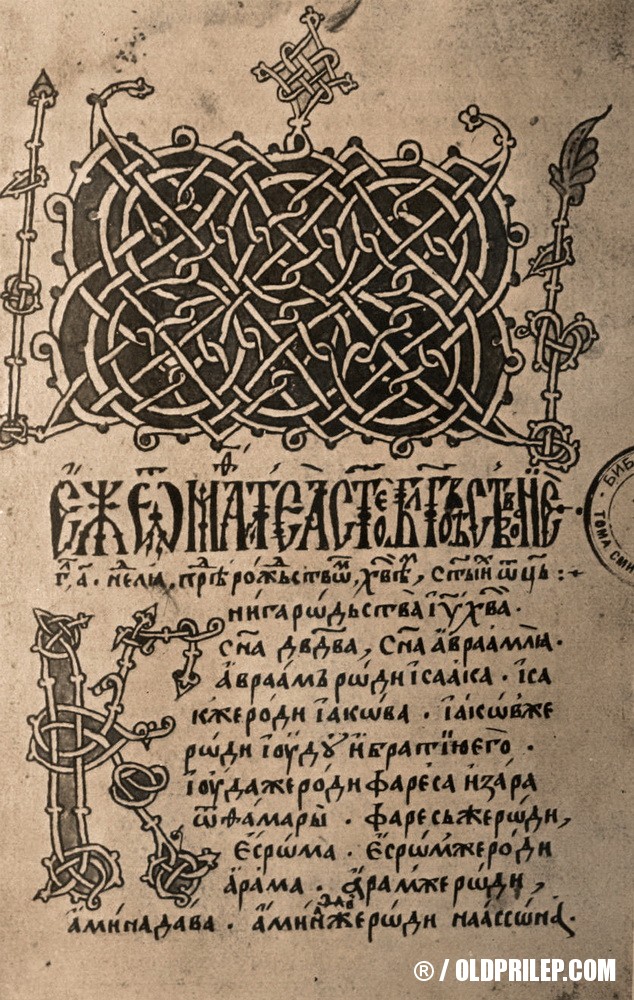 є҆́же ѿ маⷴ҇ѳе́а ст҃о́е бл҃говѣ́ствованїе
гл҃а · а҃ · нєⷣлѧ , прѣⷣ рожⷣьствоⷨ , хв҃ѣⷨ , ст҃ы́хъ ѿц҃ь :
нига рѡдьства і҆у҃ хв҃а ·
сн҃а дв҃два , сн҃а а҆враа́млꙗ ·
а҆враа́мь рѡди і҆саа́ка · і҆са
кже роди і҆а́кѡва · і҆а́кѡвже
рѡди і҆оу́дꙋ и҆ бра́тїю є҆го̀ ·
і҆оу́да же роди фаре́са и҆ за́ра
ѿ ѳа́мары · фаре́сь же рѡди ,
є҆срѡ́ма · є҆срѡ́мже роди
а҆ра́ма · а҆ра́мже рѡди ,
а҆мїнада́ва · а҆мїнадавже рѡди наассѡ́на ·
БИБ
ТОМА СМИ
® / OLDPRILEP.COM